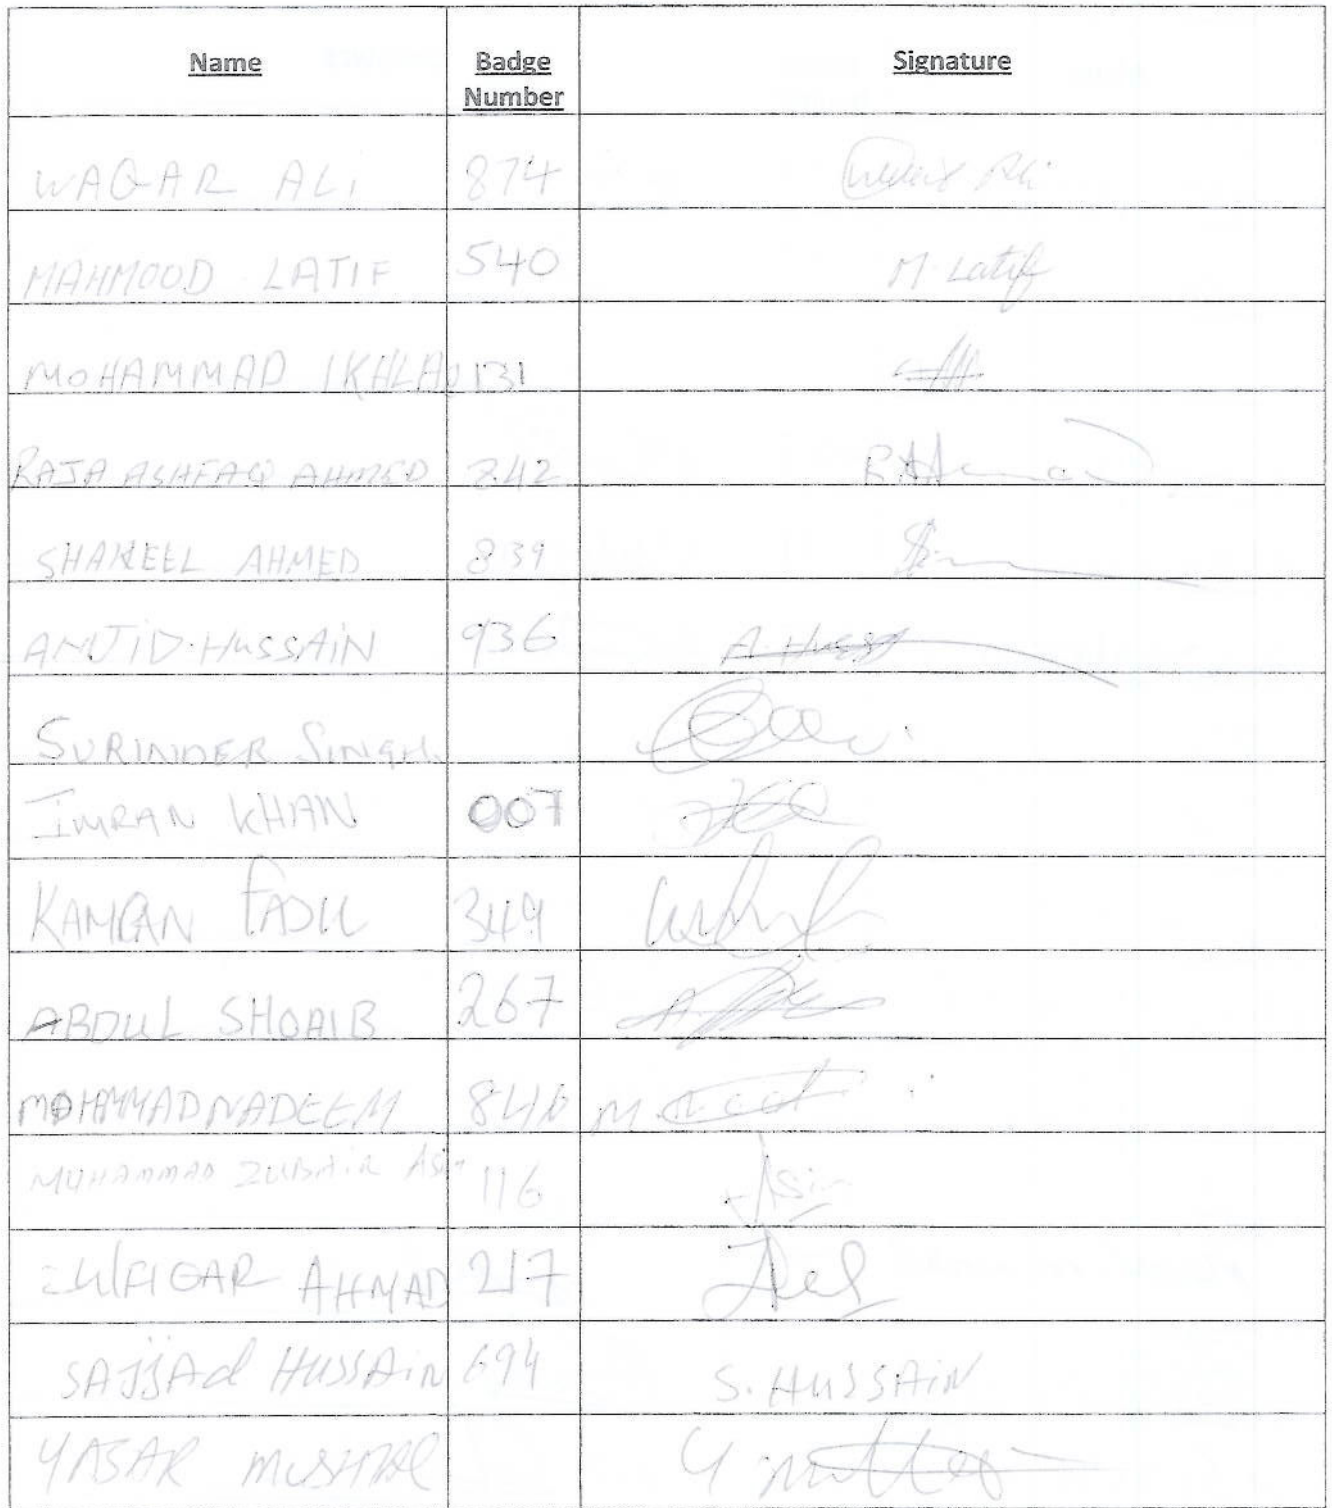 Name Badge Number Signature
WAQAR ALi 874
MAHMOOD LATIF 540 M. Latif
MOHAMMAD IKHLAQ 131
RAJA ASHFAQ AHMED 242
SHAKEEL AHMED 839
AMJiD HUSSAiN 936 A. Huss
SURINDER SINGH
IMRAN KHAN 007
KAMRAN FADIL 349
ABDUL SHOAIB 267
MOHMMAD NADEEM
MUHAMMAD ZUBAiR ASim 116
ZULFIQAR AHMAD 217
SAJJAd HUSSAiN 694 S. HUSSAiN
YASAR